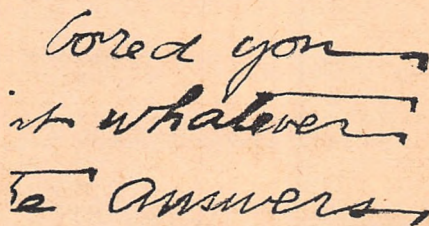 bored you
whatever
answers